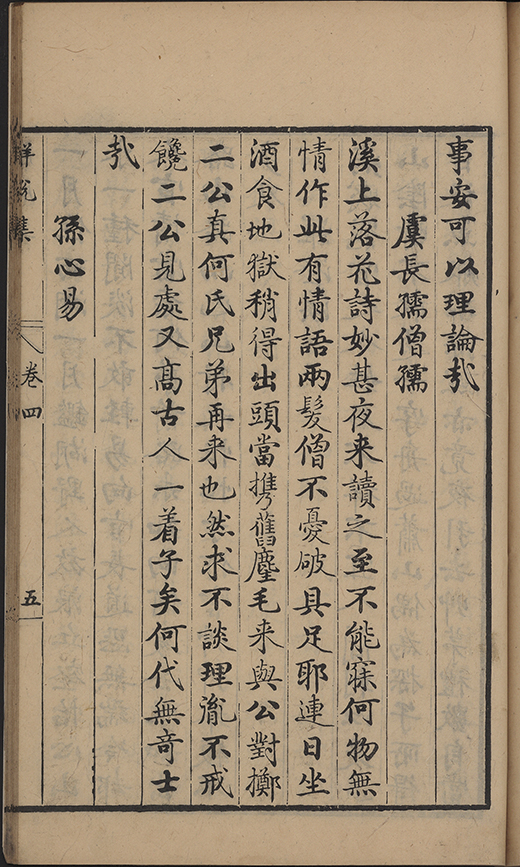 事安可以理論哉
虞長孺僧孺
溪上落花詩妙甚夜来讀之至不能寐何物無
情作此有情語兩髮僧不憂破具足耶連日坐
酒食地獄稍得出頭當携舊麈毛来與公對擲
二公真何氏兄弟再来也然求不談理胤不戒
饞二公見處又高古人一着子矣何代無竒士
哉
孫心易
解脱集
卷四
五